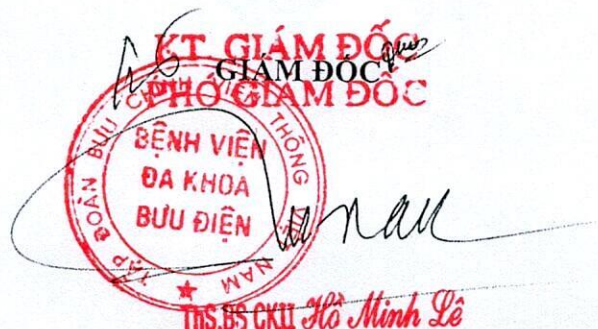 KT. GIÁM ĐỐC
GIÁM ĐỐC
PHÓ GIÁM ĐỐC
TẬP ĐOÀN BƯU CHÍNH VIỄN THÔNG VIỆT NAM
BỆNH VIỆN
ĐA KHOA
BƯU ĐIỆN
ThS.BS CKII Hồ Minh Lê